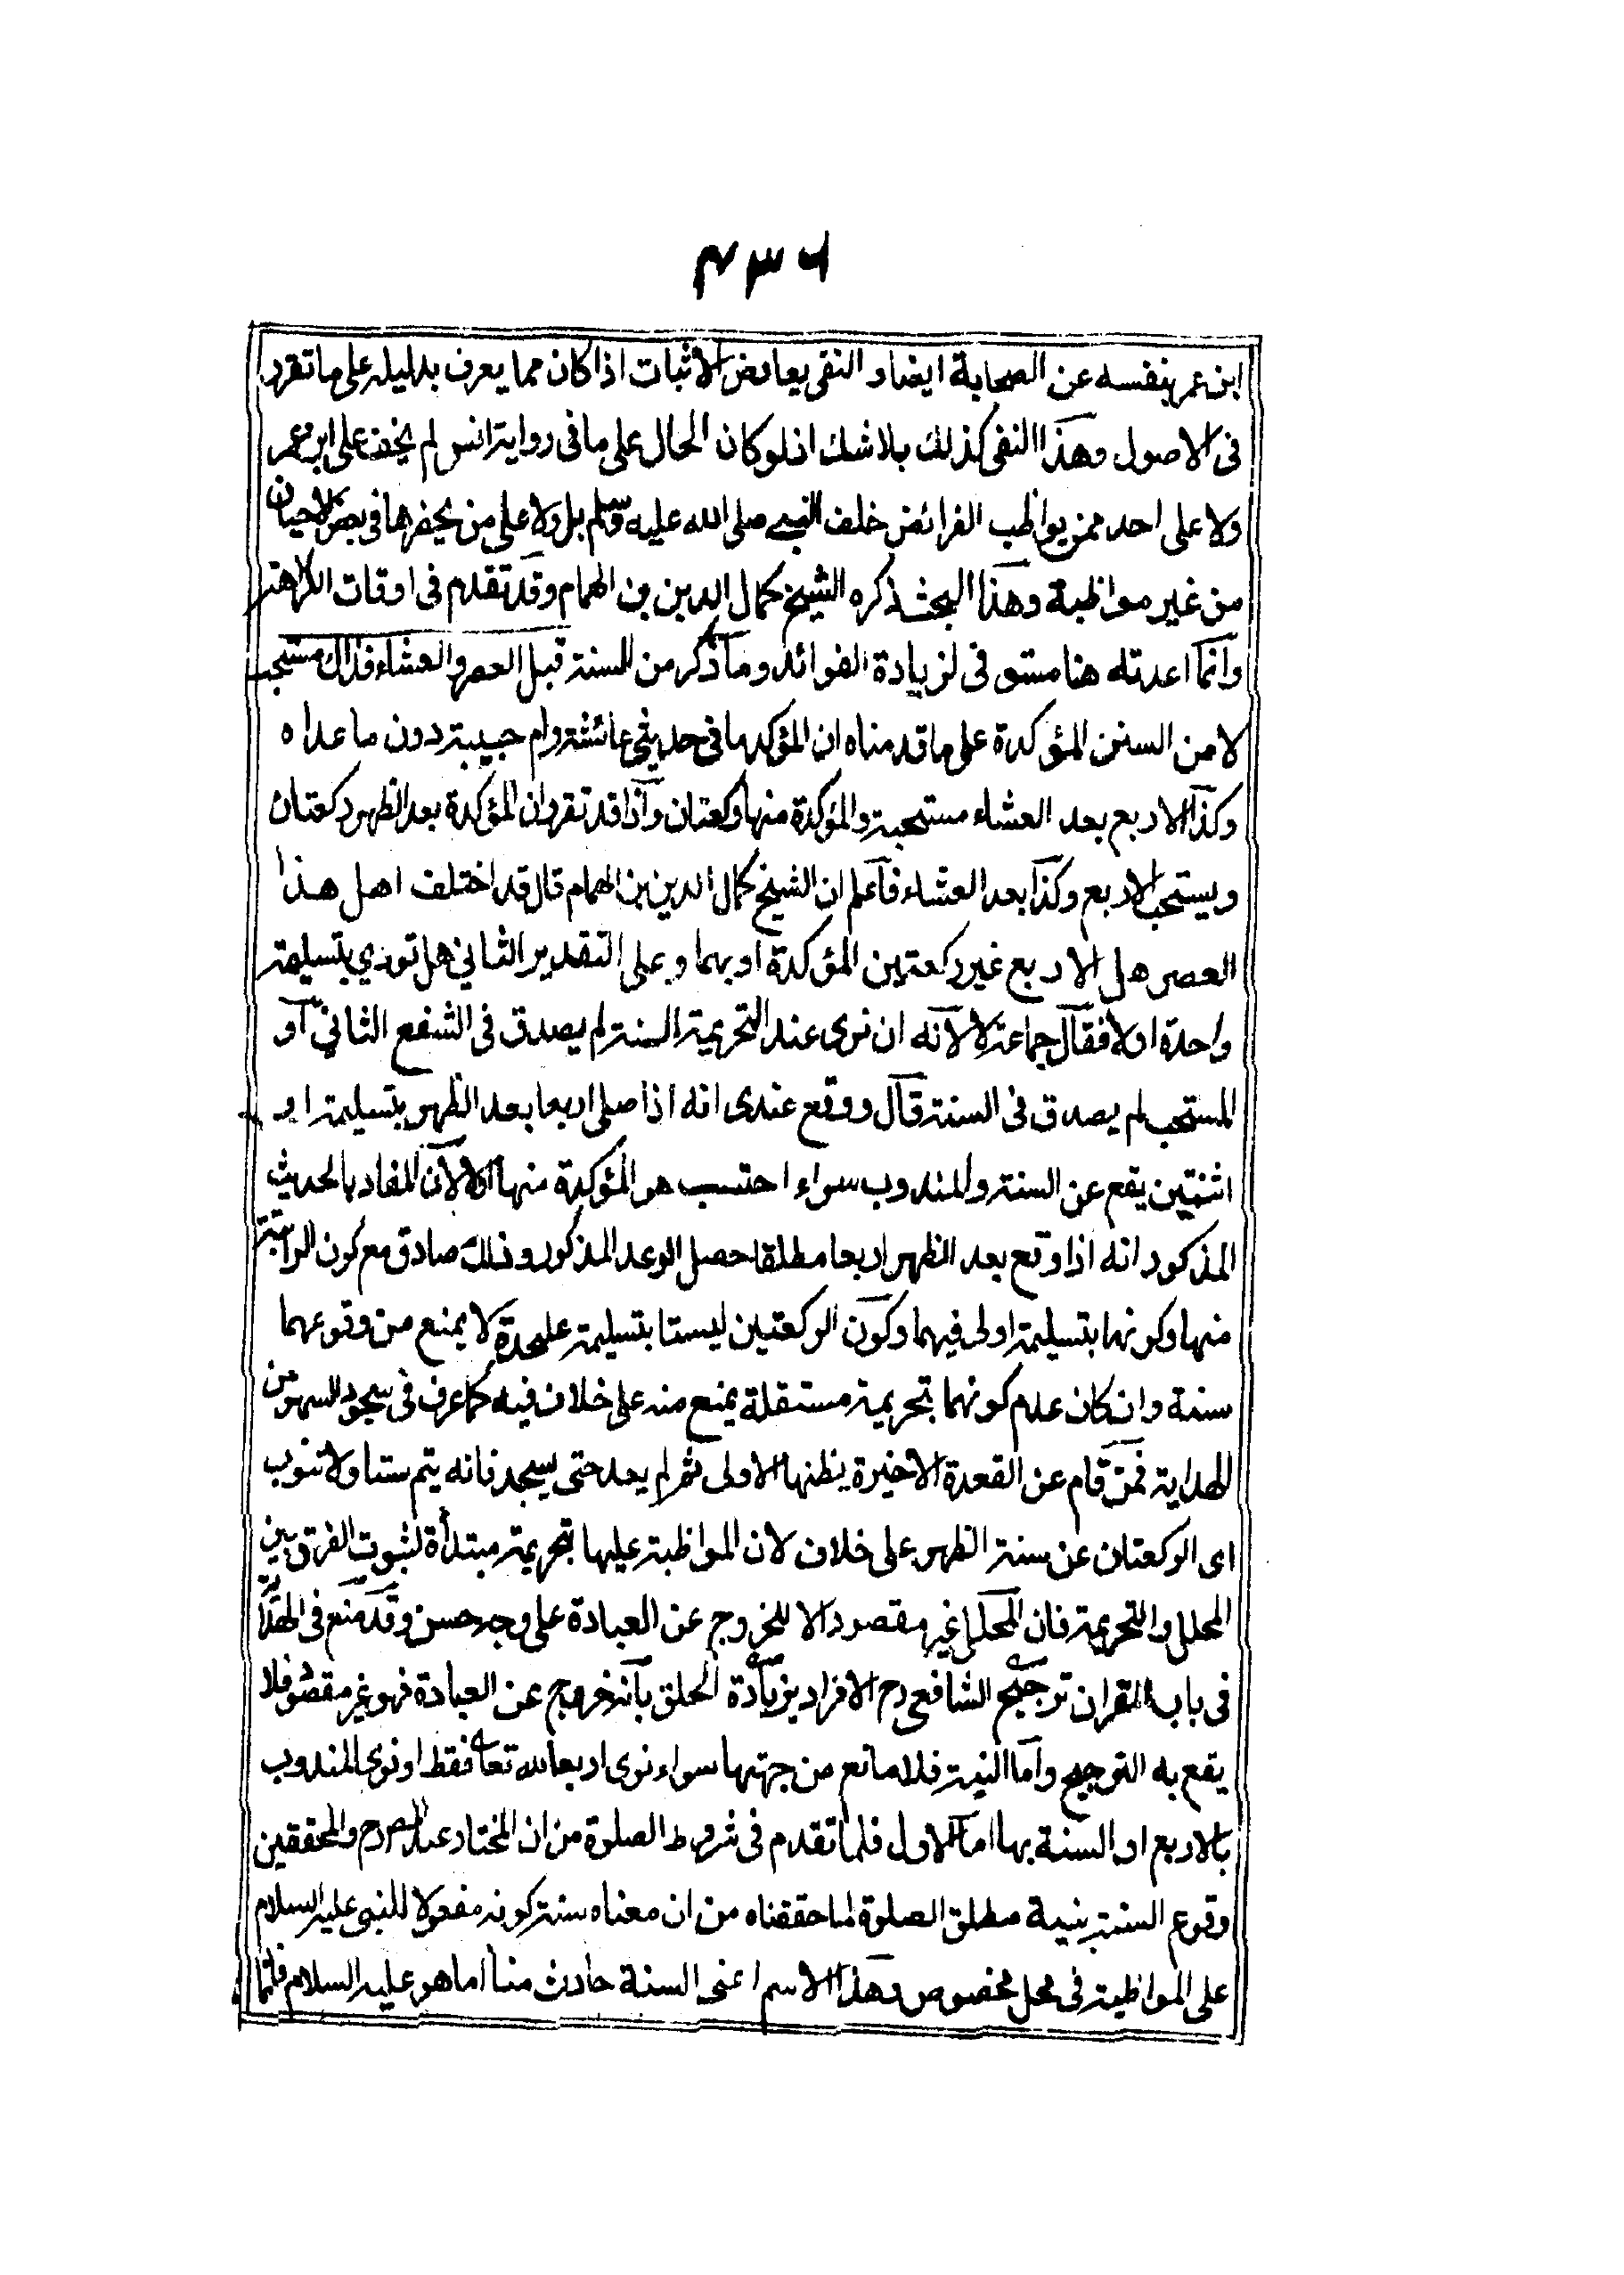 ۴۳۶
ابن عمر بنفسه عن الصحابة ايضا و النفى يعارض الاثبات اذا كان مما يعرف بدليله على ما تقرر
فى الاصول وهذا النفى كذلك بلا شك اذ لو كان الحال على ما فى رواية انس لم يخف على ابن عمر
ولا على احد ممن يواظب الفرائض خلف النبي صلى الله عليه وسلم بل ولا على من يحضرها فى بعض الاحيان
من غير مواظبة وهذا البحث ذكره الشيخ كمال الدين بن الهمام وقد تقدم فى اوقات الكراهة
وانما اعدته هنا مستوفى لزيادة الفوائد وما ذكر من السنة قبل العصر والعشاء فذاك مستحب
لا من السنن المؤكدة على ما قدمناه ان المؤكد ما فى حديثى عائشة وام حبيبة دون ما عداه
وكذا الاربع بعد العشاء مستحبة والمؤكدة منها ركعتان واذا قد تقرر ان المؤكدة بعد الظهر ركعتان
ويستحب الاربع وكذا بعد العشاء فاعلم ان الشيخ كمال الدين بن الهمام قال قد اختلف اهل هذا
العصر هل الاربع غير ركعتين المؤكدة او بهما وعلى التقدير الثاني هل تودي بتسليمة
واحدة اولا فقال جماعة لا لانه ان نوى عند التحريمة السنة لم يصدق فى الشفع الثاني او
المستحب لم يصدق فى السنة قال ووقع عندى انه اذا صلى اربعا بعد الظهر بتسليمة او
اثنتين يقع عن السنة والمندوب سواء احتسب هو المؤكدة منها اولا لان المفاد بالحديث
المذكور انه اذا وقع بعد الظهر اربعا مطلقا حصل الوعد المذكور وذلك صادق مع كون الراتبة
منها وكونها بتسليمة اولى فيهما وكون الركعتين ليستا بتسليمة علىحدة لا يمنع من وقوعهما
سنة وان كان عدم كونهما بتحريمة مستقلة يمنع منه على خلاف فيه كما عرف فى سجود السهو من
الهداية فمن قام عن القعدة الاخيرة يظنها الاولى ثم لم يعد حتى يسجد فانه يتم ستا ولا تنوب
اى الركعتان عن سنة الظهر على خلاف لان المواظبة عليها بتحريمة مبتدأة لثبوت الفرق بين
المحلل والتحريمة فان المحلل غير مقصود الا للخروج عن العبادة على وجه حسن وقد منع فى الهداية
فى باب القران ترجيح الشافعى رح الافراد بزيادة الحلق بانه خروج عن العبادة فهو غير مقصود فلا
يقع به الترجيح واما النية فلا مانع من جهتها سواء نوى اربعا لله تعالى فقط او نوى المندوب
بالاربع او السنة بها اما الاول فلما تقدم فى شروط الصلوة من ان المختار عند المص رح والمحققين
وقوع السنة بنية مطلق الصلوة لما حققناه من ان معناه سنة كونه مفعولا للنبى عليه السلام
على المواظبة فى محل مخصوص وهذا الاسم اعنى السنة حادث منا اما هو عليه السلام فانما